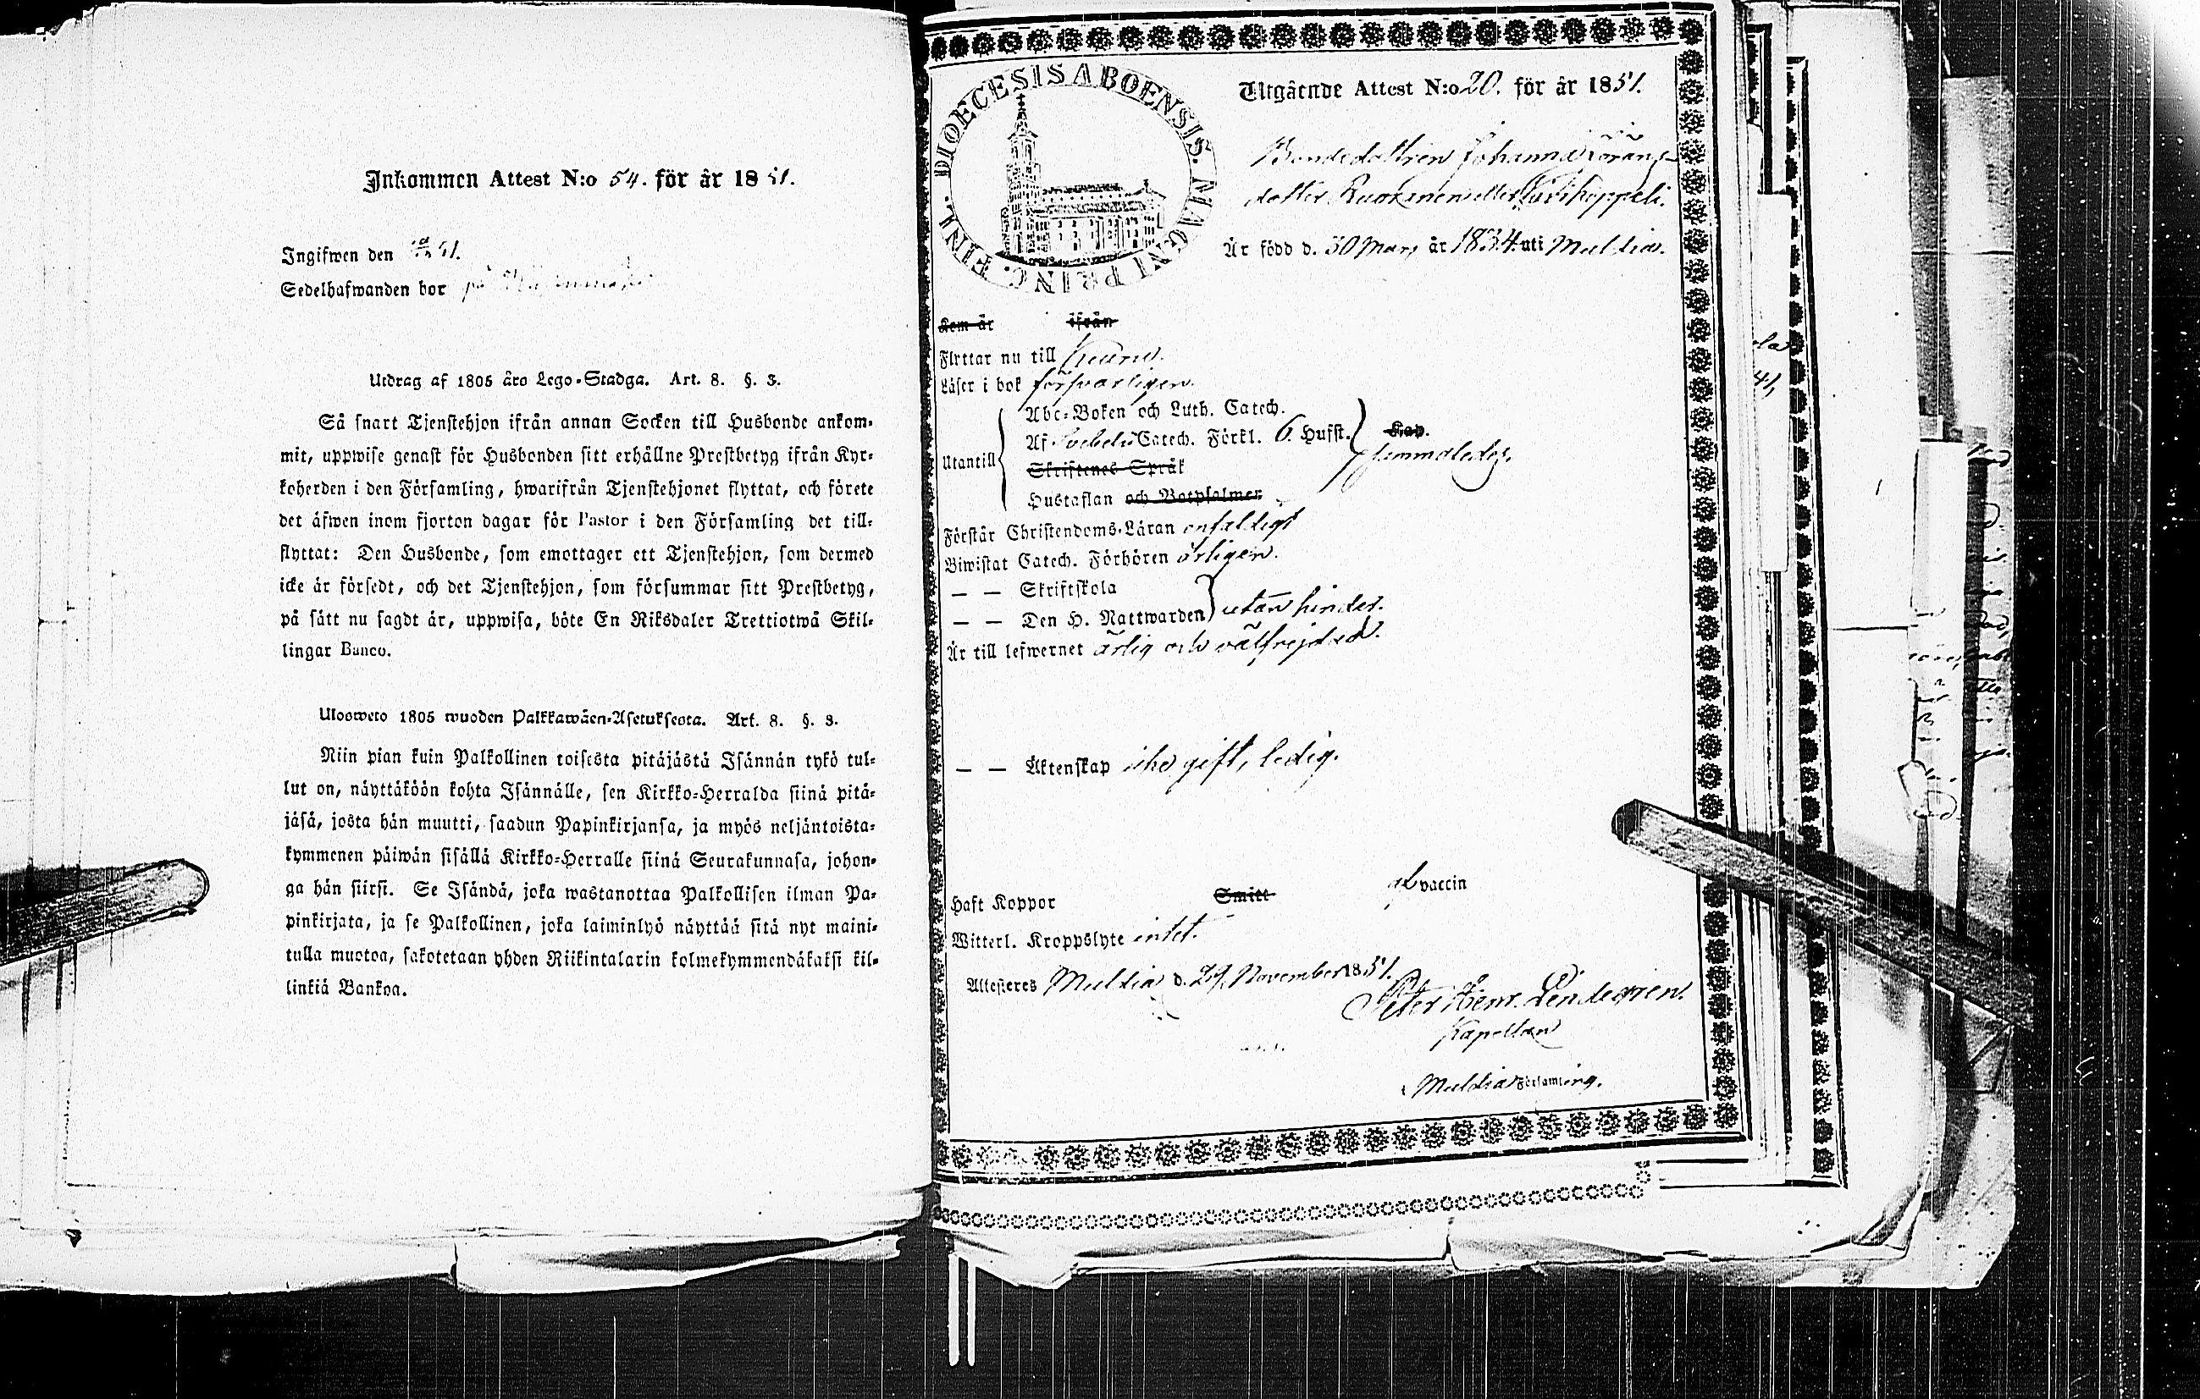 Inkommen Attest N:o 54. för år 1851.
Ingifwen den
Sedelhafwanden bor på
Utdrag af 1805 åro Lego-Stadga. Art. 8. §. 3.
Så snart Tjenstehjon ifrån annan Socken till Husbonde ankom-
mit, uppwise genast för Husbonden sitt erhållne Prestbetyg ifrån Kyr-
koherden i den Församling, hwarifrån Tjenstehjonet flyttat, och förete
det äfwen inom fjorton dagar för Pastor i den Församling det till-
flyttat: Den Husbonde, som emottager ett Tjenstehjon, som dermed
icke är försedt, och det Tjenstehjon, som försummar sitt Prestbetyg,
på sätt nu sagdt är, uppwisa, böte En Riksdaler Trettiotwå Skil-
lingar Banco.
Ulosweto 1805 wuoden Palkkawäen-Asetuksesta. Art. 8. §. 3.
Niin pian kuin Palkollinen toisesta pitäjästä Isännän tykö tul-
lut on, näyttäköön kohta Isännälle, sen Kirkko-Herralda siinä pitä-
jäsä, josta hän muutti, saadun Papinkirjansa, ja myös neljäntoista-
kymmenen päiwän sisällä Kirkko-Herralle siinä Seurakunnasa, johon-
ga hän siirsi. Se Isändä, joka wastanottaa Palkollisen ilman Pa-
pinkirjata, ja se Palkollinen, joka laiminlyö näyttää sitä nyt maini-
tulla muotoa, sakotetaan yhden Riikintalarin kolmekymmendäkaksi kil-
linkiä Bankoa.
DIOECESIS ABOENSIS. MAGNI PRINC. FINL.
Utgående Attest N:o 20. för år 1851.
Bondedottren Johanna Görans-
dotter Ruokonen eller
Är född d. 30 Mars år 1834 uti Multia.
Kom är ifrån
Flyttar nu till Keuru.
Läser i bok försvarligen.
Utantill
Abc-Boken och Luth. Catech.
Af Svebelii Catech. Förkl. 6. Hufst. Kap.
Skriftenes Språk
Hustaflan och Botpsalmer
Förstår Christendoms-Läran enfaldigt
Biwistat Catech. Förhören årligen.
— — Skriftskola
— — Den H. Nattwarden utan hinder.
Är till lefwernet ärlig och välfrejdad.
— — Äktenskap icke gift, ledig.
Haft Koppor Smitt af vaccin
Witterl. Kroppslyte intet.
Attesteres Multia d. 29. November 1851.
Peter Henr. Lindegren.
Kapellan
Multia Församling.